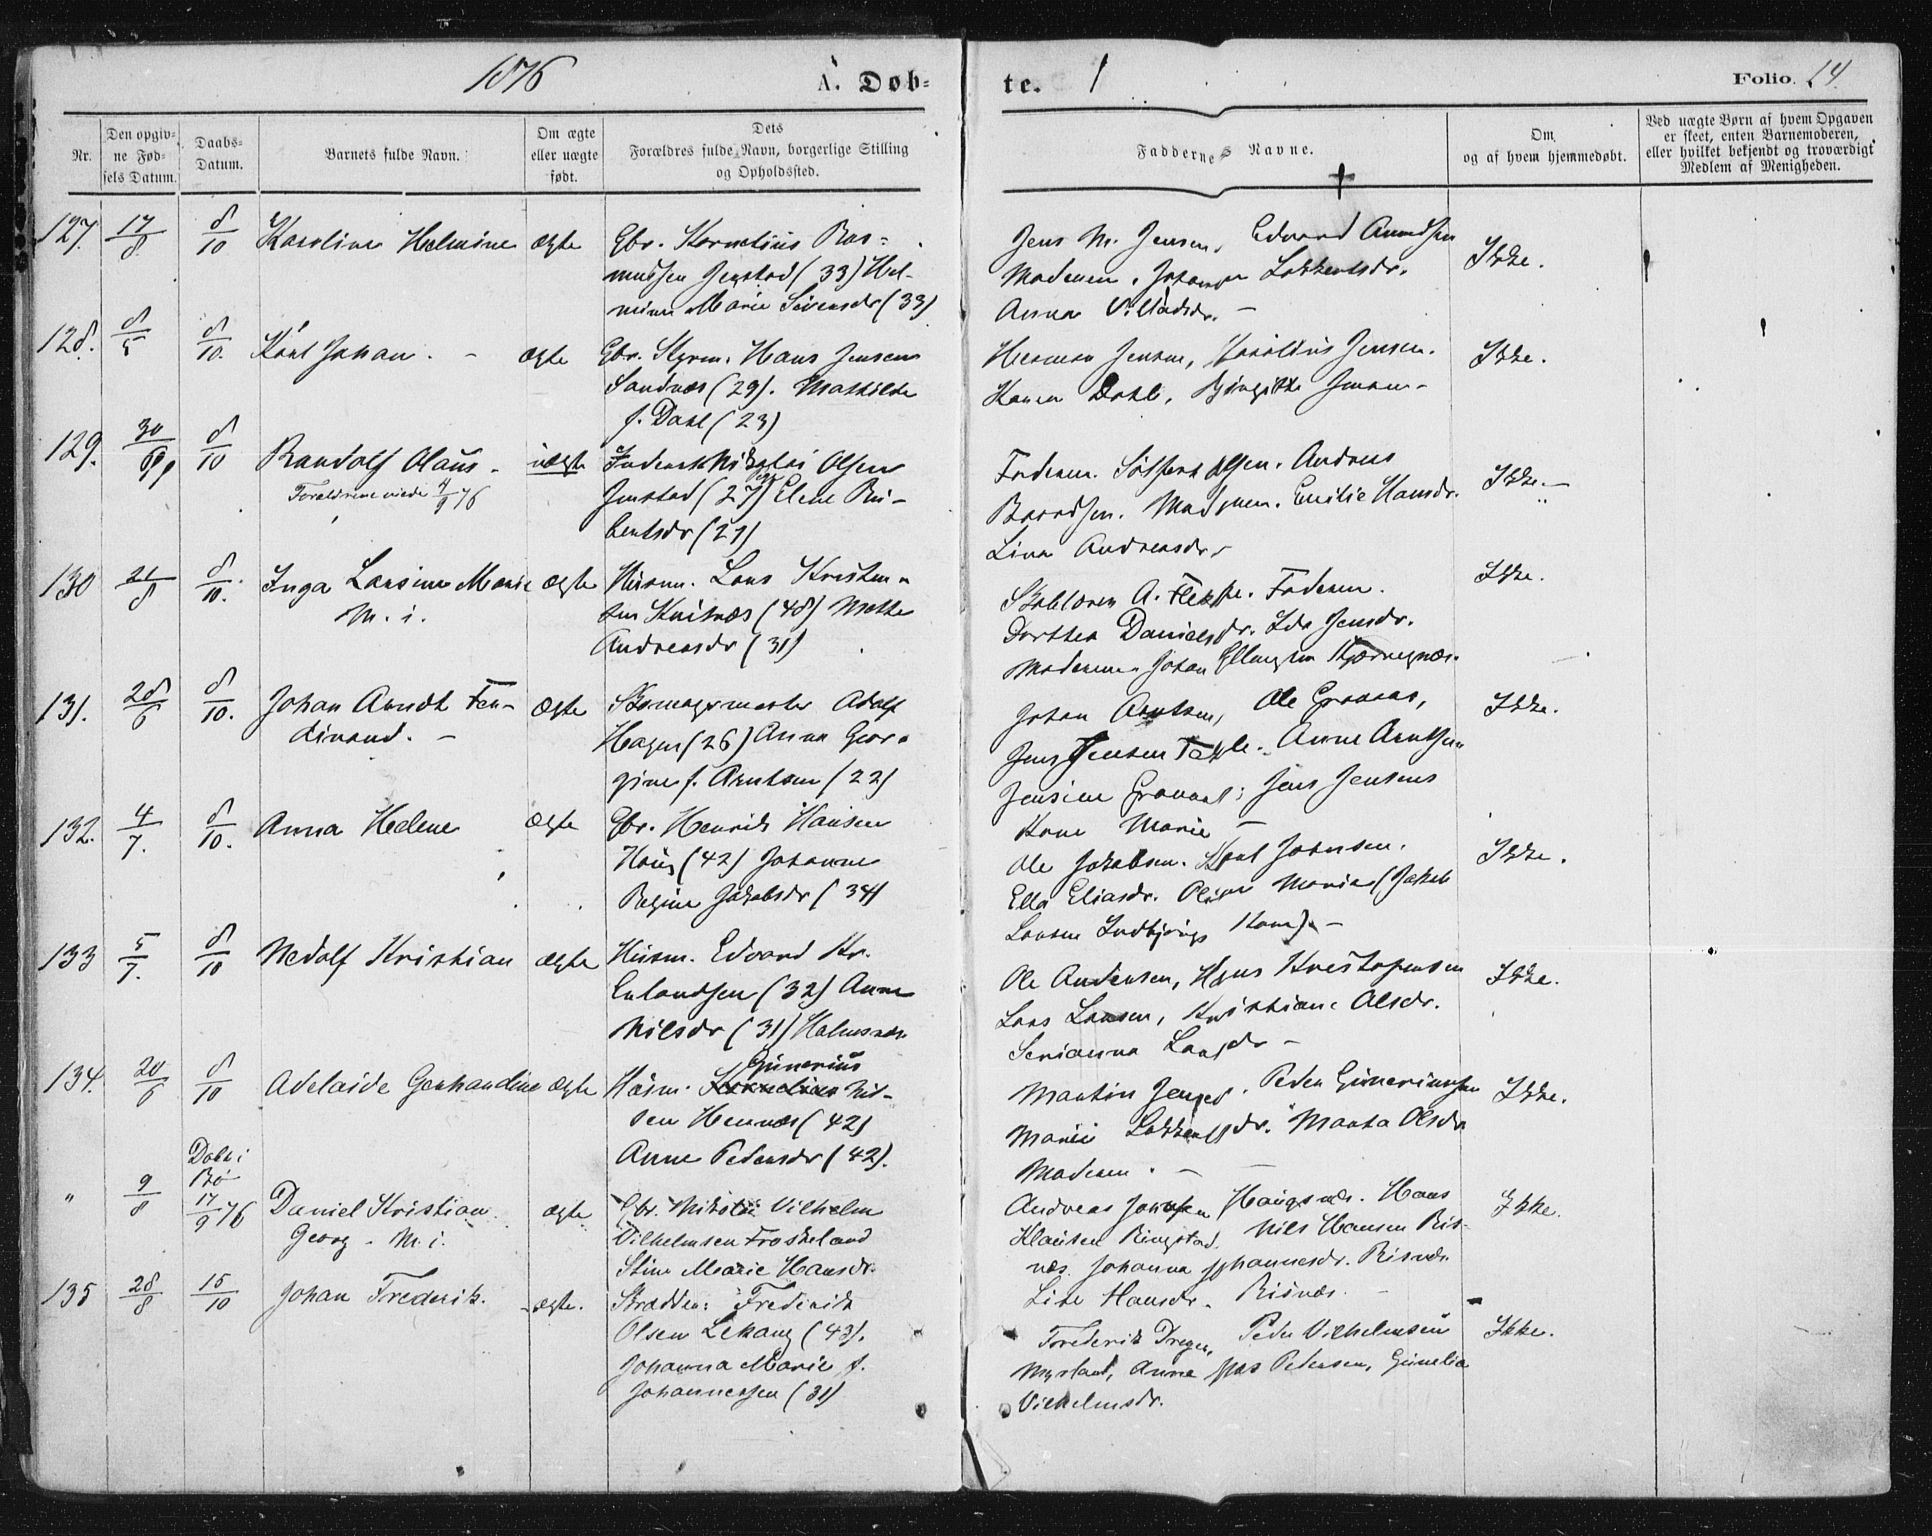 1876
A. Døb-
te.
1
Folio. 14.
Nr.
Den opgiv-
ne Fød-
sels Datum.
Daabs-
Datum.
Barnets fulde Navn.
Om ægte
eller uægte
født.
Dets
Forældres fulde Navn, borgerlige Stilling
og Opholdssted.
Faddernes Navne.
Om
og af hvem hjemmedøbt.
Ved uægte Børn af hvem Opgaven
er skeet, enten Barnemoderen,
eller hvilket bekjendt og troværdigt
Medlem af Menigheden.
127. 17/8 8/10 Karoline Helmine ægte
Gbr. Kornelius Ras-
mussen Jenstad (33) Hel-
mine Marie Sivertsdr (33)
Jens M. Jensen, Edvard Arndtsen
Moderen, Lokkertsdr.
Anna Villadsdr. -
Ikke.
128. 8/5 8/10. Karl Johan. - ægte
Gbr. Styrm. Hans Jensen
Sandnæs (29). Mathilde
f. Dahl (23)
Herman Jensen, Haraldus Jensen.
Hanna Dahl, Birgitte Jensen -
Ikke.
129. 30/ 8/10 Randolf Olaus. uægte
Forældrene viede 4/9 76
Inderst Nikolai Olsen
Jenstad (27) Elene Ru-
bertsdr (21)
Faderen. Olsen. Andreas
Baardsen. Moderen. Emilie Hansdr.
Lina Andreasdr.
Ikke. -
130 21/8 8/10. Inga Larsine Marie ægte
M. i.
Husm. Lars Kristen-
sen Kvitnæs (48) Mette
Andreasdr (31)
Skolelærer A. Faderen.
Dorthea Danielsdr. Ida Jensdr.
Moderen. Johan Ellingsen
Ikke.
131. 28/6 8/10. Johan Arndt Fer- ægte
dinand. -
Skomagermester Adolf
Hagen (26) Anna Geor-
gine f. Arntsen (22)
Johan Arntsen, Ole
Jens Jensen Anne Arntsen
Jensine Jens Jensens
Kone Marie -
Ikke.
132. 4/7. 8/10. Anna Helene ægte
Gbr. Henrik Hansen
Haug (42) Johanna
Regine Jakobsdr (34)
Ole Jakobsen. Johnsen.
Ella Eliasdr. Marie (Jakob
Larsen Indbjergs Kone). -
Ikke.
133 5/7. 8/10 Nedolf Kristian ægte
Husm. Edvard Kr.
Erlandsen (32) Anne
Nilsdr (31) Holmsnæs
Ole Andersen, Hans Kristofersen
Lars Larsen, Kristiane Olsdr.
Serianna Larsdr -
Ikke.
134. 20/6 8/10 Adelaide Gerhardine ægte
Husm. Gunerius Nil-
sen Hennes (42)
Anne Pedersdr (42).
Martin Jenses. Peder Guneriussen
Marie Lokkertsdr. Marta Olsdr
Moderen. - -
Ikke.
" 9/8 Døbt i
Bø
17/9 76 Daniel Kristian ægte
Georg. M. i.
Gbr. Nikolai Vilhelm
Vilhelmsen Froskeland
Stine Marie Hansdr.
Andreas Johnsen Haugsnes. Hans
Klausen Ringstad. Nils Hansen Ris-
næs. Johanna Johannesdr. Risnæs
Lise Hansdr. Risnæs. -
Ikke.
135 28/8 15/10 Johan Frederik. ægte.
Skrædder: Frederik
Olsen Lekang (43).
Johanna Marie f.
Johannessen (31)
Frederik Dreyer, Peder Vilhelmsen
Anna Petersen, Gunelia
Vilhelmsdr.
Ikke.